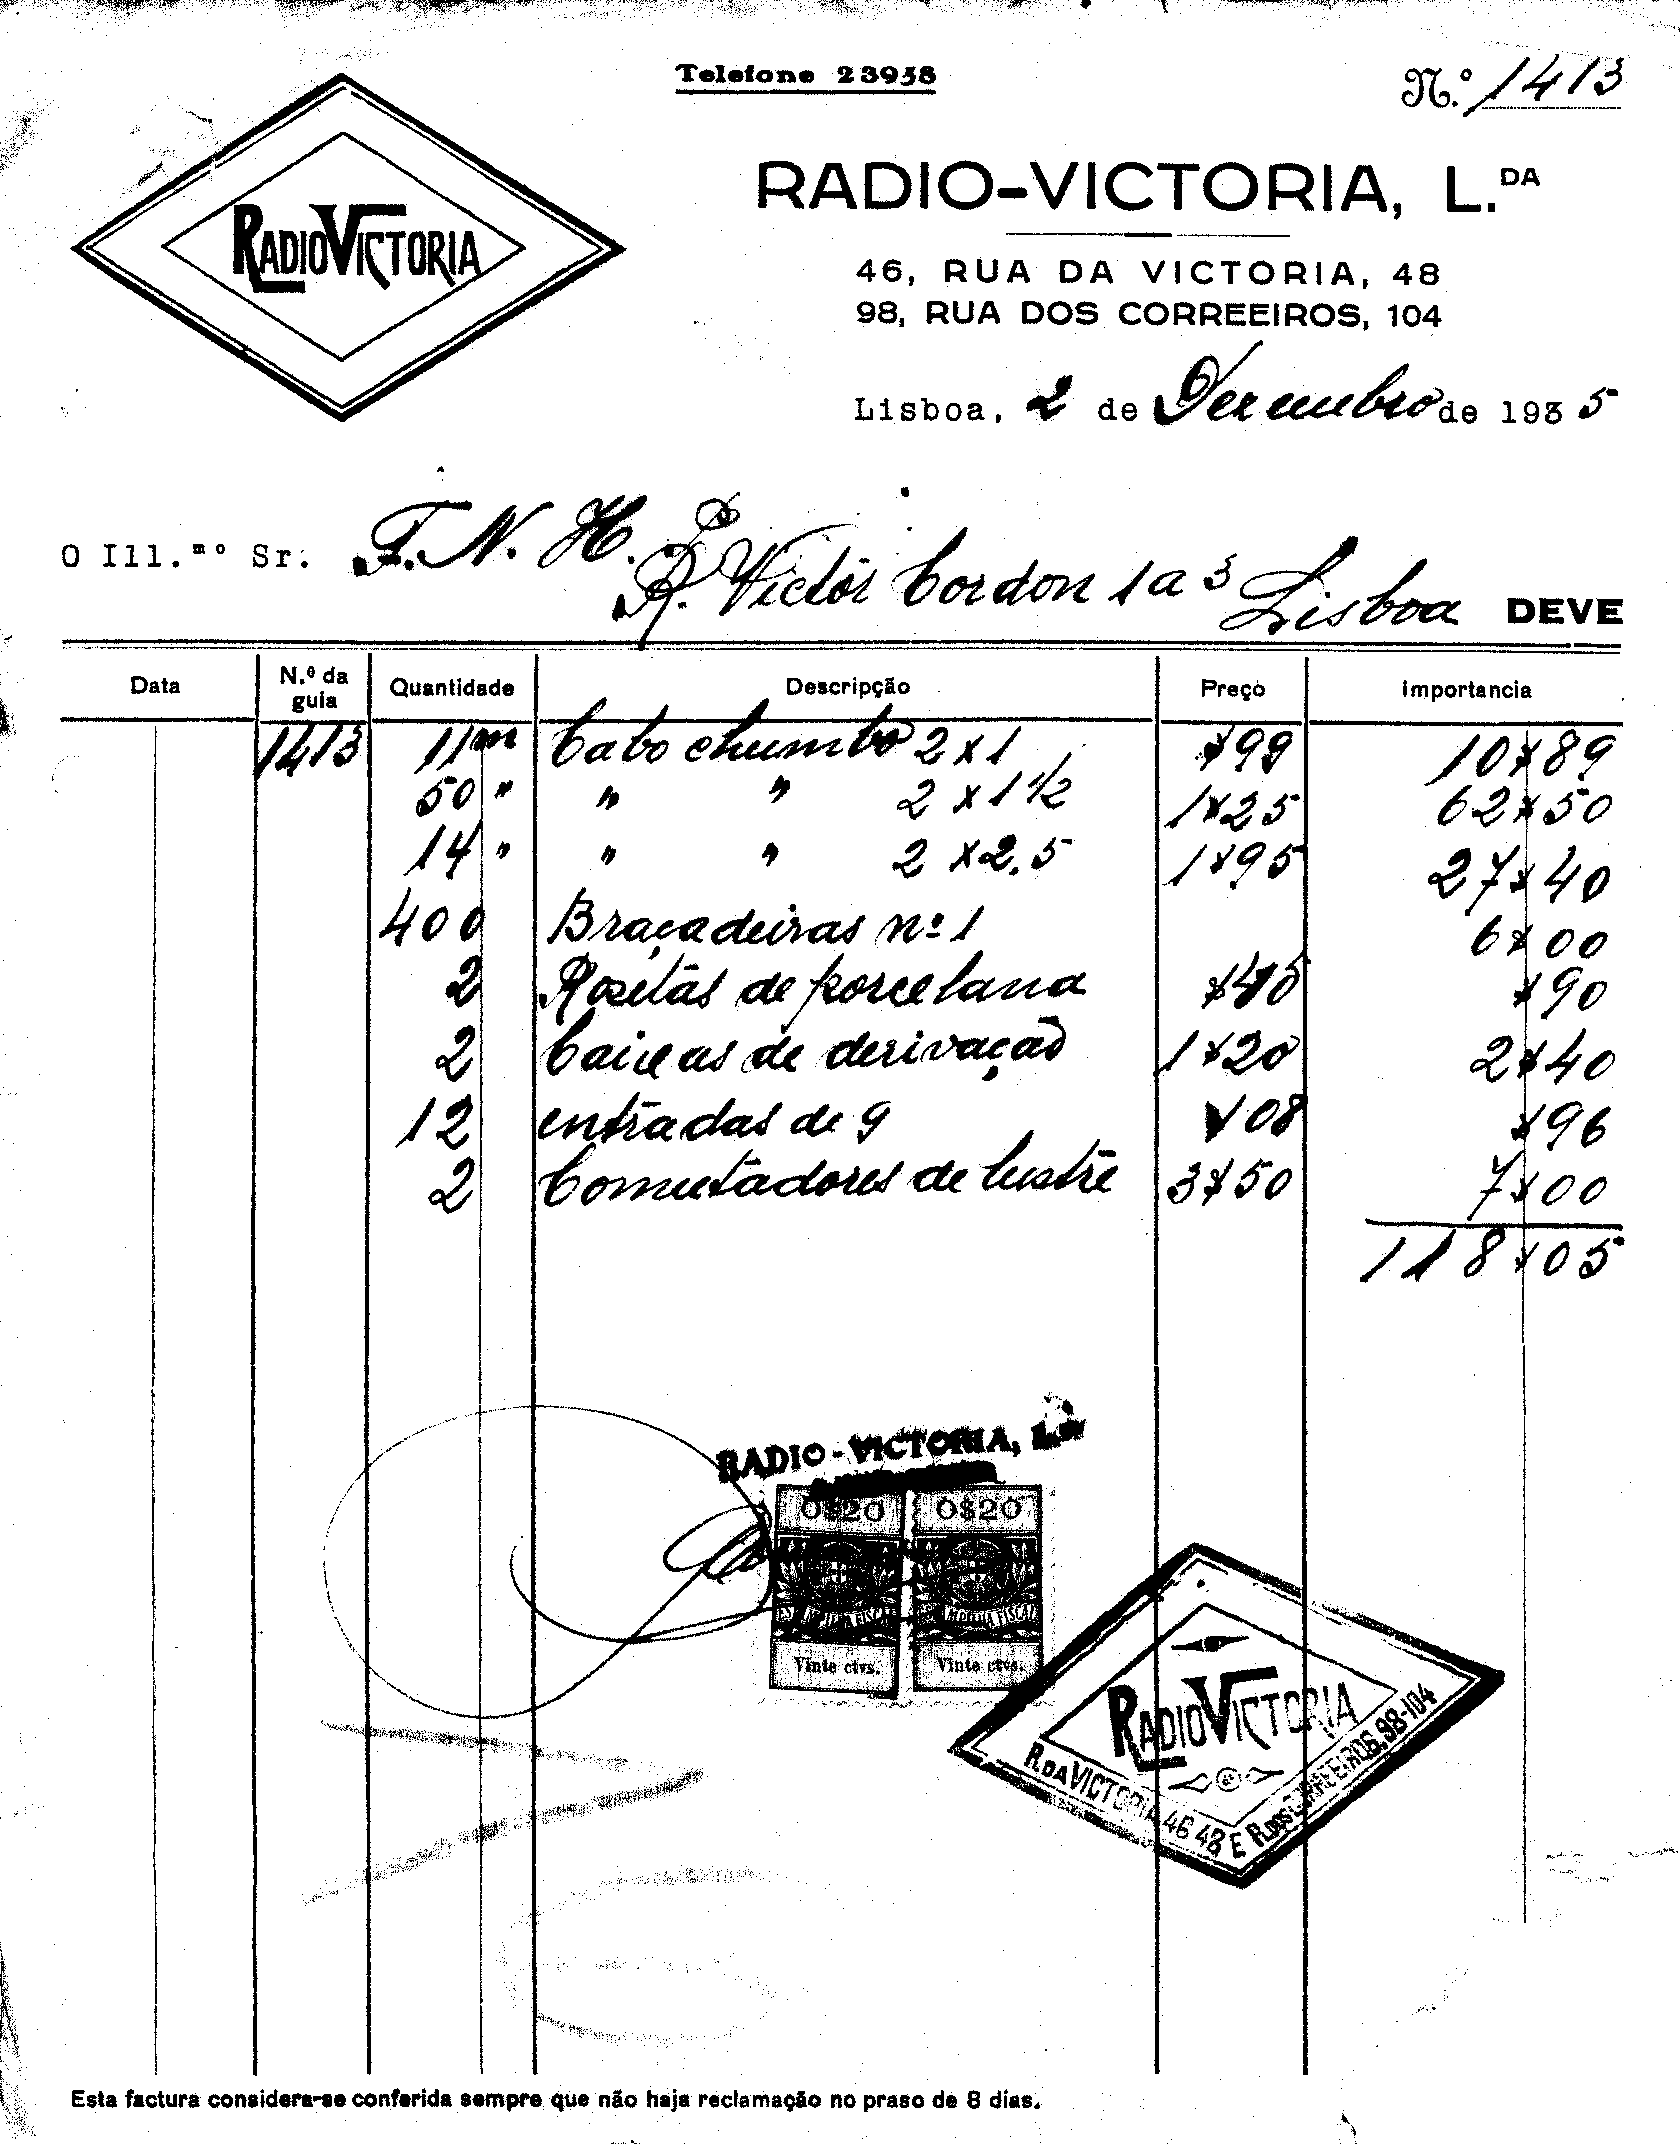 Telefone 23958
N.º 1413
RADIO VICTORIA
RADIO-VICTORIA, L.DA
46, RUA DA VICTORIA, 48
98, RUA DOS CORREEIROS, 104
Lisboa, 2 de Dezembro de 1935
O Ill.mo Sr. F. N. H. P
R. Victór Cordon 1 a 3 Lisboa DEVE
Data N.º da guia Quantidade Descripção Preço Importancia
1413 11m Cabo chumbo 2 x 1 $99 10$89
50 " " " 2 x 1 1/2 1$25 62$50
14 " " " 2 x 2.5 1$95 27$40
400 Braçadeiras nº 1 6$00
2 Rozetas de porcelana $45 $90
2 Caixas de derivação 1$20 2$40
12 entradas de 9 $08 $96
2 Comutadores de lustre 3$50 7$00
118$05
RADIO-VICTORIA, L.DA
0$20 0$20
Vinte ctvs. Vinte ctvs.
RADIO VICTORIA
R. DA VICTORIA 46 48 E R. DOS CORREEIROS, 98-104
Esta factura considera-se conferida sempre que não haja reclamação no praso de 8 dias.